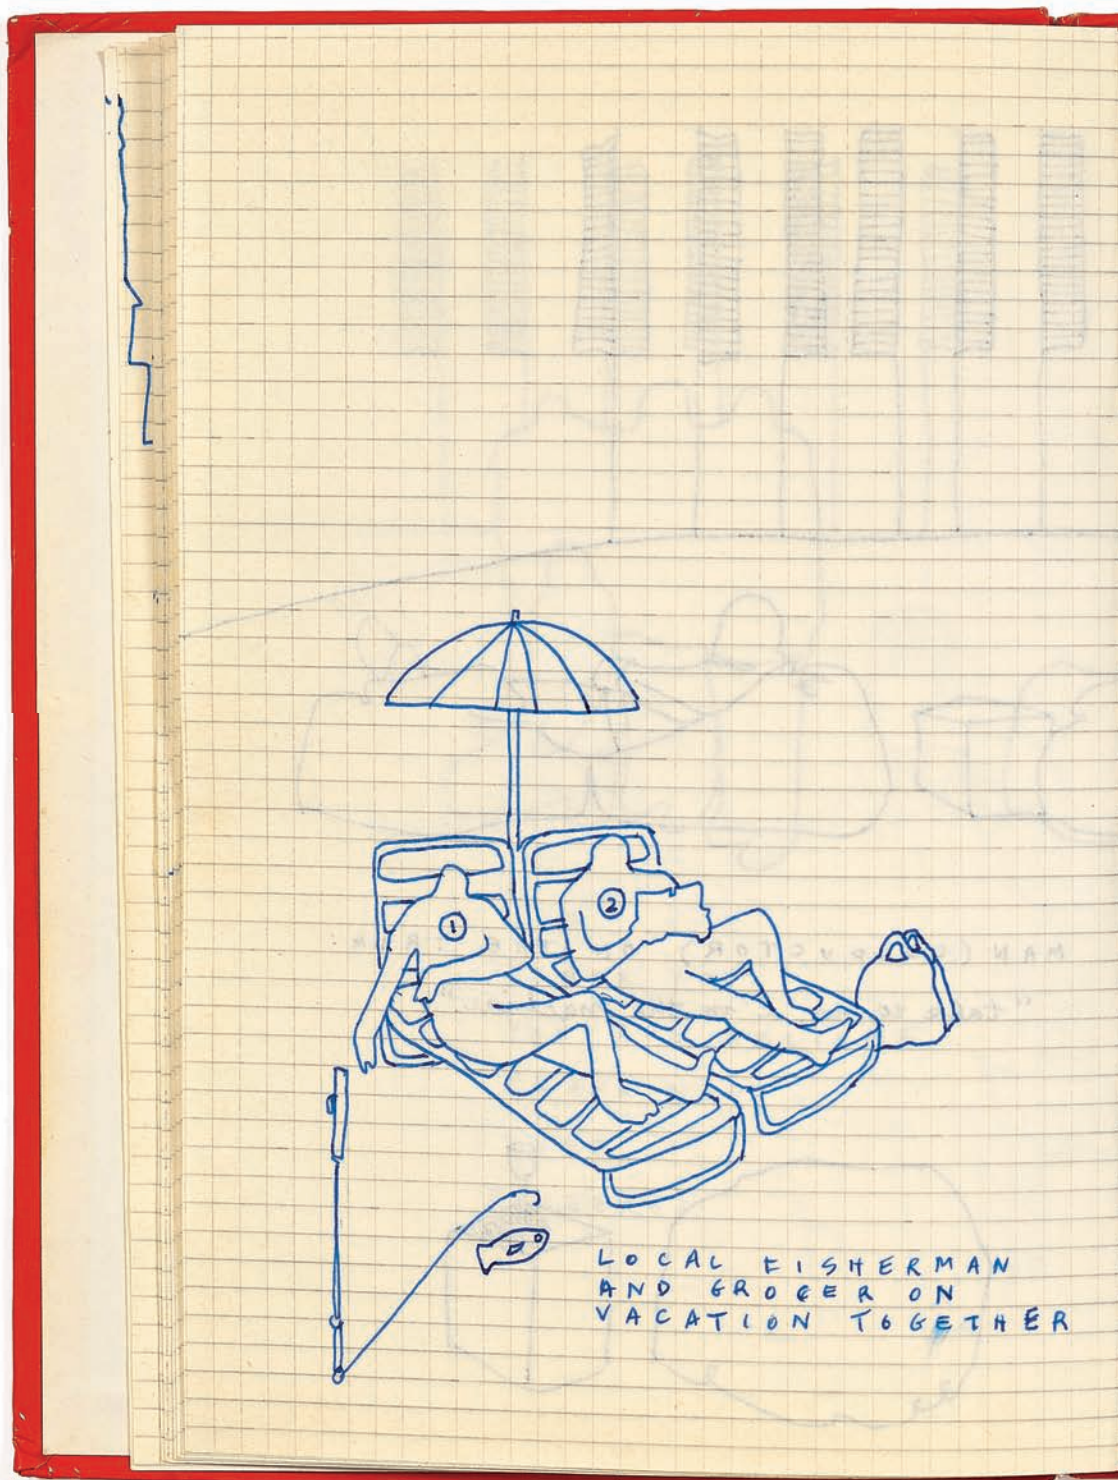 1
2
LOCAL FISHERMAN
AND GROCER ON
VACATION TOGETHER